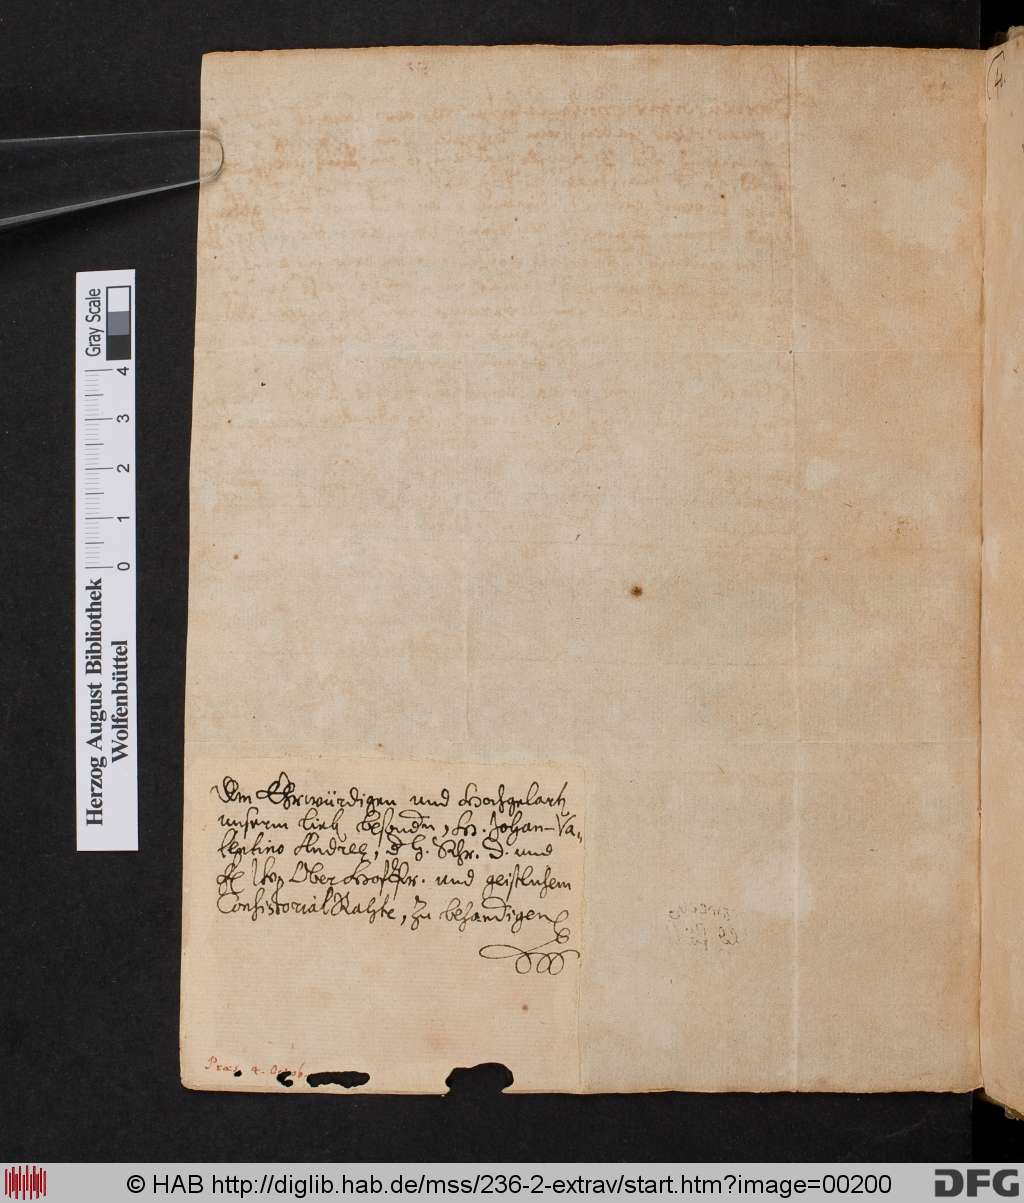 Dem Ehrwürdigen und Hochgelart
unserm lieb, besondn, H. Johan-Va-
lentino Andreę, d. h. Schr. D. und
Ober Hoff und geistlichem
Consistorial Rahte, zu behandigen
Præs. 4. Octob.
Gray Scale
0 1 2 3 4
Herzog August Bibliothek
Wolfenbüttel
4.
© HAB http://diglib.hab.de/mss/236-2-extrav/start.htm?image=00200
DFG